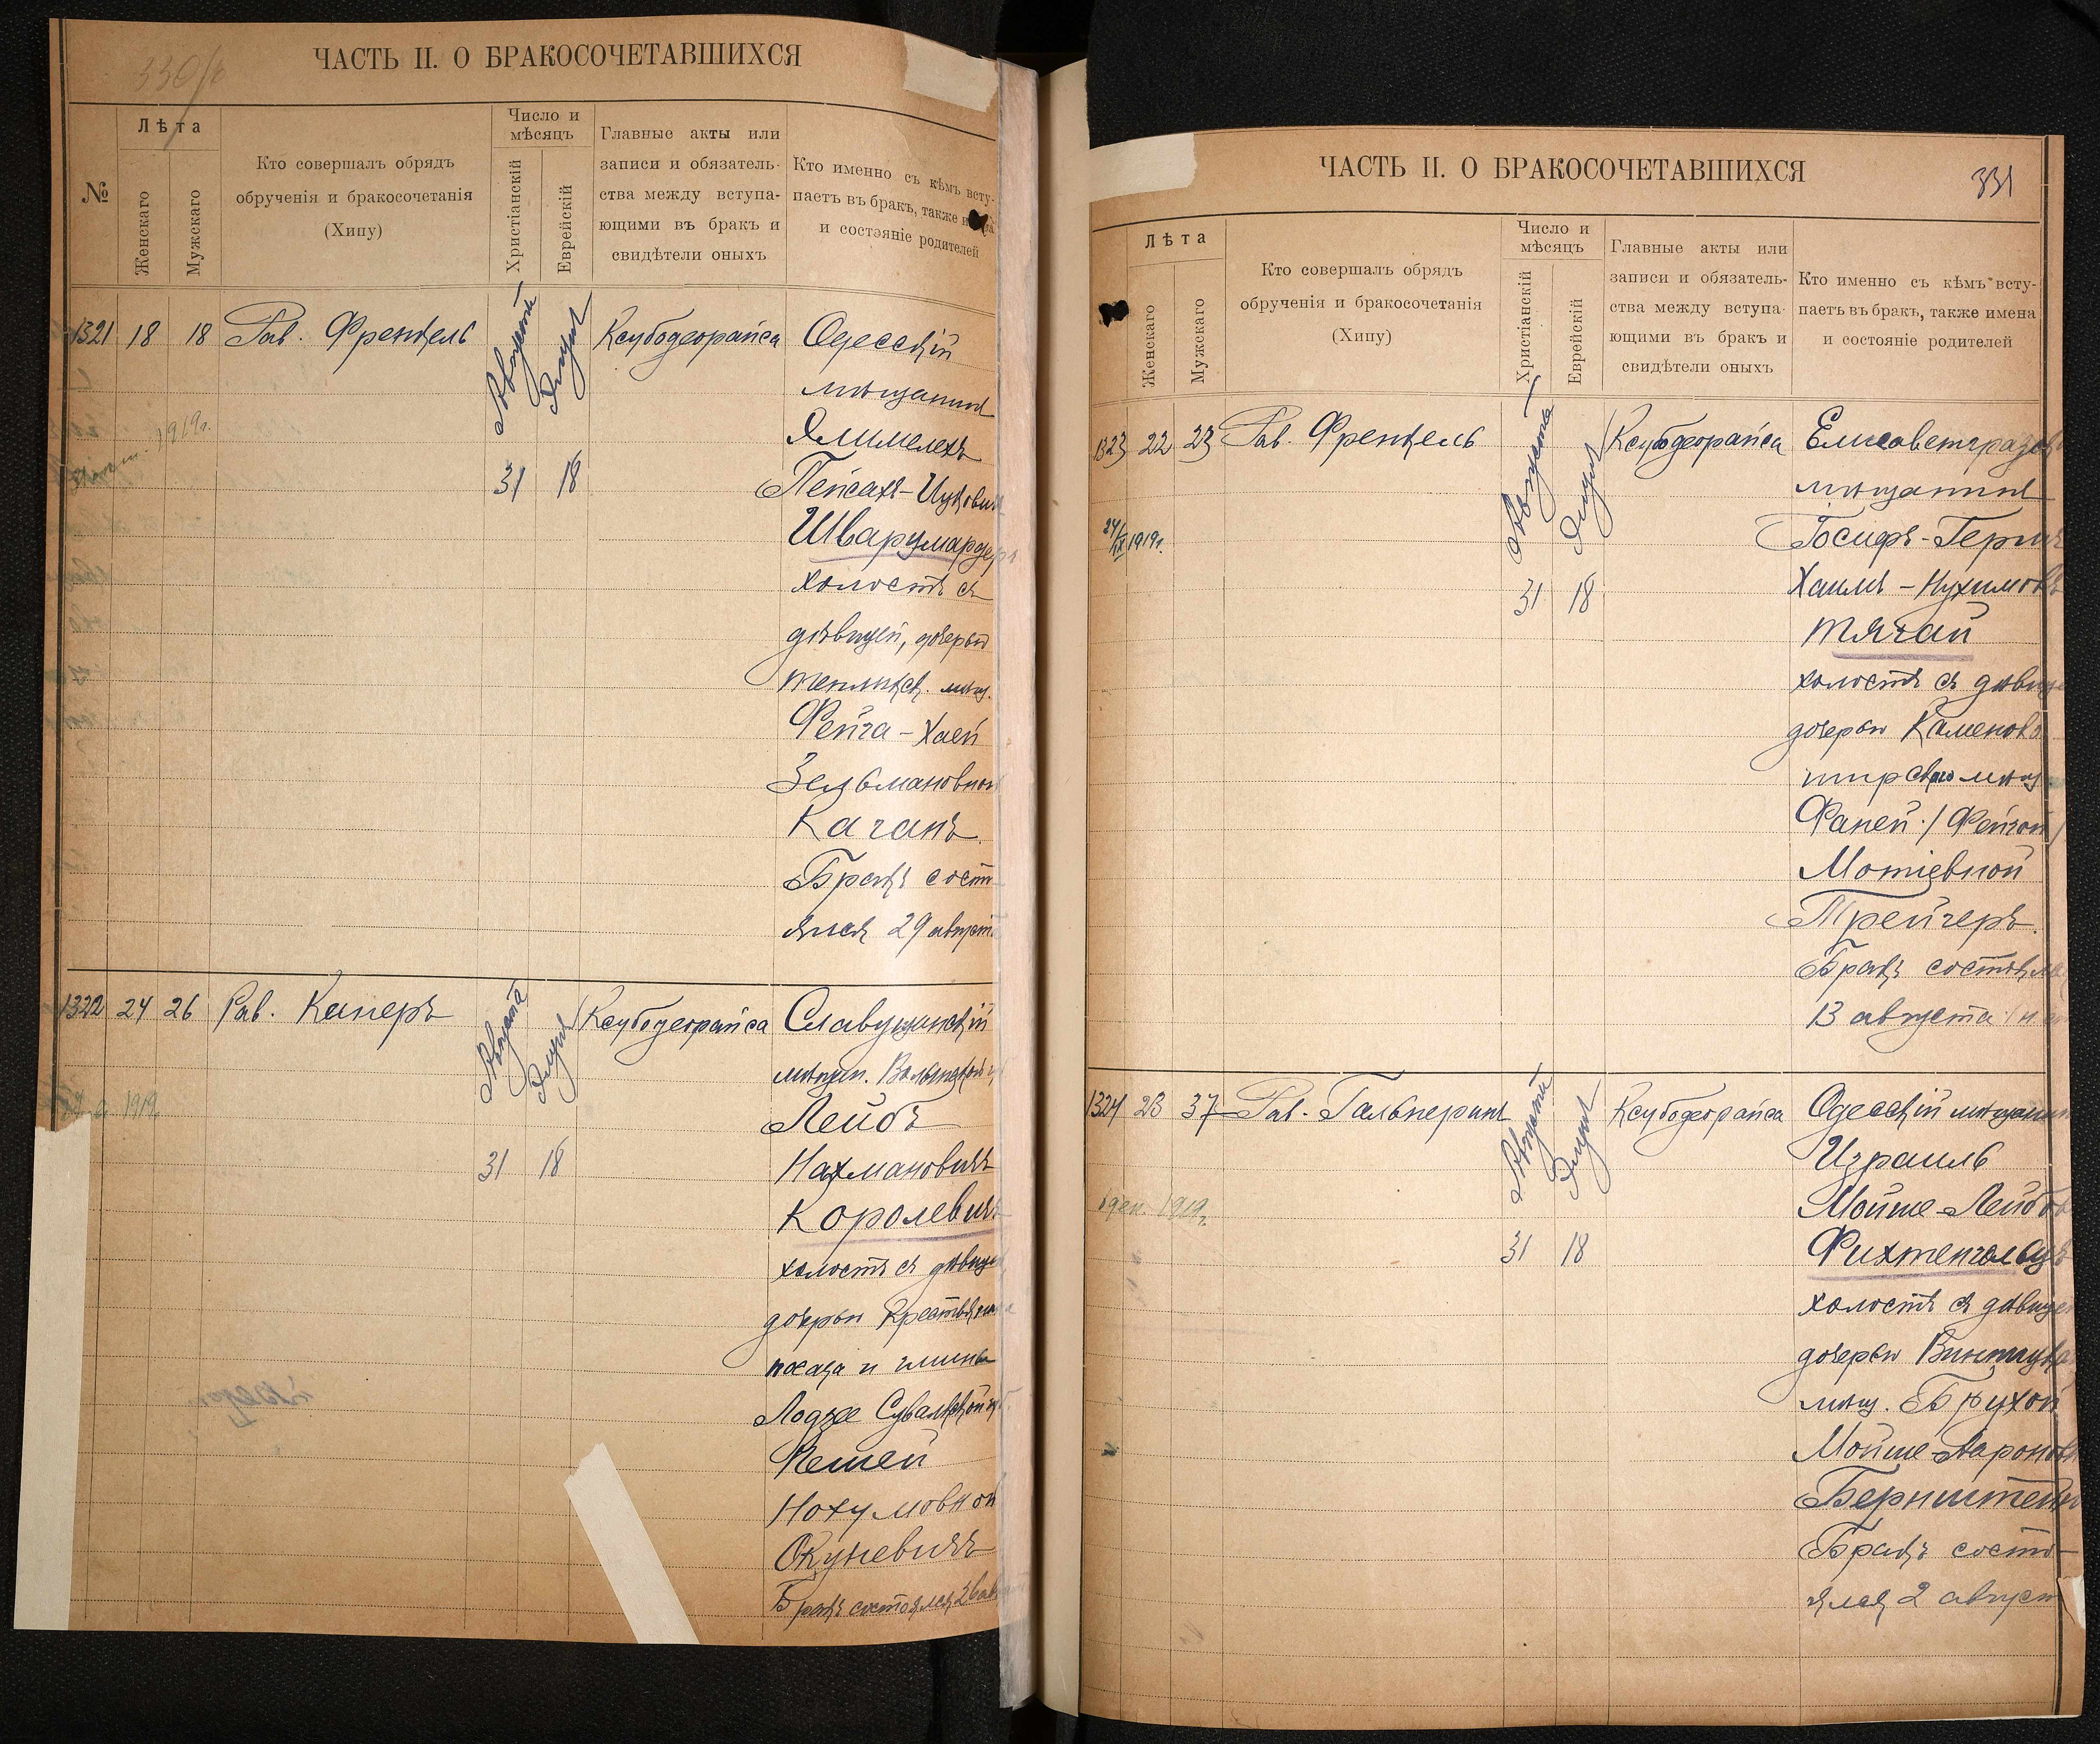 330/б
ЧАСТЬ II. О БРАКОСОЧЕТАВШИХСЯ
№
Лѣта
Женскаго
Мужскаго
Кто совершалъ обрядъ
обрученія и бракосочетанія
(Хипу)
Число и
мѣсяцъ
Христіанскій
Еврейскій
Главные акты или
записи и обязатель-
ства между вступа-
ющими въ бракъ и
свидѣтели оныхъ
Кто именно съ кѣмъ всту-
паетъ въ бракъ, также
и состояніе родителей
1321 18 18 Рав. Френкель Августа Элула Ксубодеорайса Одесскій
мѣщанинъ
Элимелехъ
1919г.
31 18 Пейсахъ-Ицков
Шварцмардеръ
холостъ съ
дѣвицей, дочерью
теплицк. мѣщ.
Фейга-Хаей
Зельмановной
Каганъ
Бракъ состо-
ялся 29 августа
1322 24 26 Рав. Каперъ Августа Элула Ксубодеорайса Славутинскій
мѣщан. Волынской
1919
Лейбъ
31 18 Нахмановичъ
Королевичъ
холостъ съ дѣвицей
дочерью Крестьянина
посада и гмины
Лодзее Сувалкской
Решей
Нохумовной
Окуневичъ
Бракъ состоялся
ЧАСТЬ II. О БРАКОСОЧЕТАВШИХСЯ
331
Лѣта
Женскаго
Мужскаго
Кто совершалъ обрядъ
обрученія и бракосочетанія
(Хипу)
Число и
мѣсяцъ
Христіанскій
Еврейскій
Главные акты или
записи и обязатель-
ства между вступа-
ющими въ бракъ и
свидѣтели оныхъ
Кто именно съ кѣмъ всту-
паетъ въ бракъ, также имена
и состояніе родителей
1323 22 23 Рав. Френкель Августа Элула Ксубодеорайса Елисаветградск
мѣщанинъ
24/IX 1919г. Іосифъ-Герш
31 18 Хаимъ-Нухимов
Тягай
холостъ съ дѣвицей
дочерью Каменобо
мѣщ
Фаней /Фейгой/
Мотіевной
Трейгеръ
Бракъ состоялся
13 августа
1324 23 37 Рав. Гальперинъ Августа Элула Ксубодеорайса Одесскій мѣщанин
Израиль
1919г. Мойше-Лейбов
31 18 Фихтенгольцъ
холостъ съ дѣвицей
дочерью
мѣщ. Брухой
Мойше-Ароновн
Бернштейн
Бракъ состо-
ялся 2 август